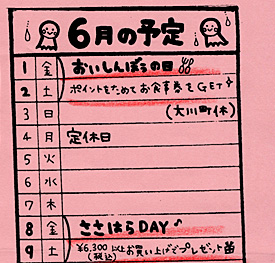 6月の予定
1 金 おいしんぼうの日
2 土 ポイントをためてお食事券をGET
3 日 (大川町休)
4 月 定休日
5 火
6 水
7 木
8 金 ささはらDAY♪
9 土 ¥6,300以上お買い上げでプレゼント苗
(税込)